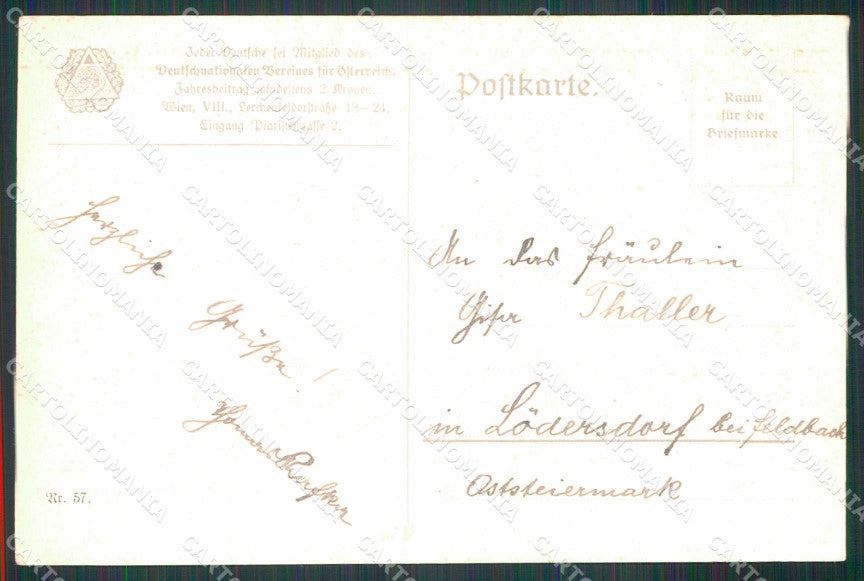 Jeder Deutsche sei Mitglied des
Deutschnationalen Vereines für Österreich.
Jahresbeitrag mindestens 2 Kronen.
Wien, VIII., Lerchenfelderstraße 18—24,
Eingang Piaristengasse 2.
Postkarte.
Raum
für die
Briefmarke
Herzliche
Grüße!
Nr. 57.
An das Fräulein
Gisa Thaller
in Lödersdorf bei Feldbach
Oststeiermark
CARTOLINOMANIA